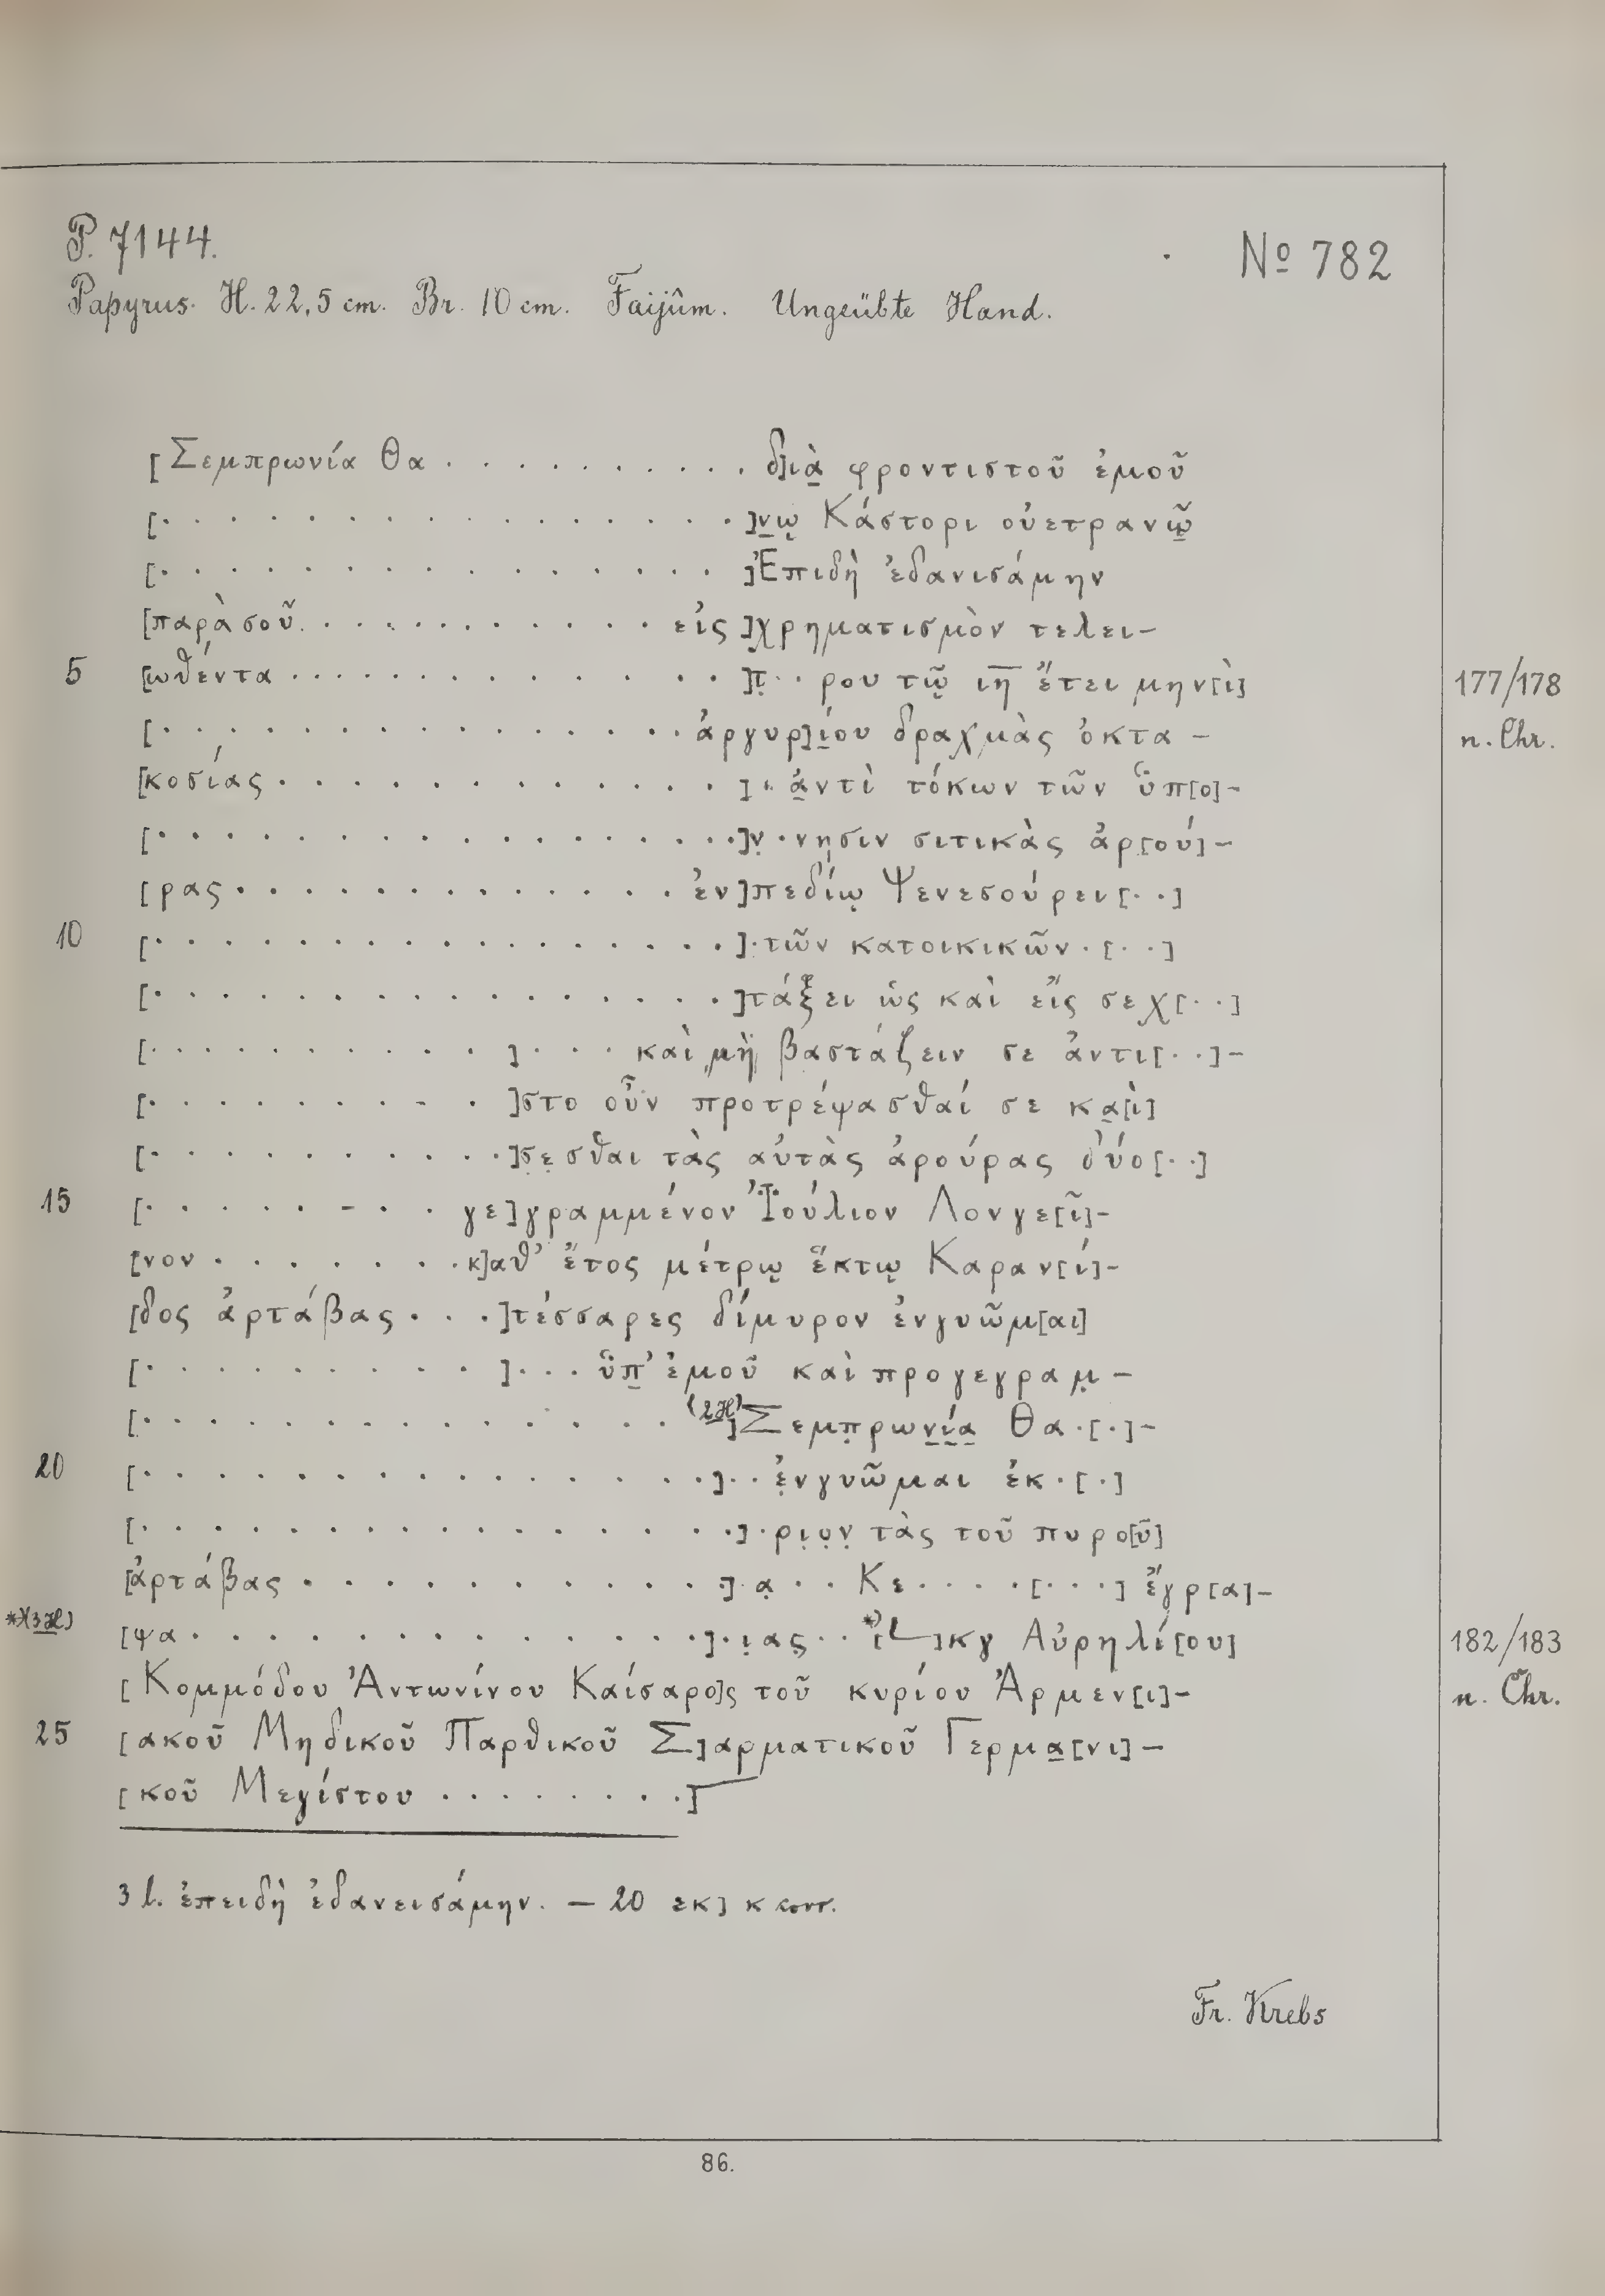 P. 7144.
№ 782
Papyrus. H. 22,5 cm. Br. 10 cm. Faijûm. Ungeübte Hand.
[Σεμπρωνία Θα . . . . . . . . . . δ]ιὰ φροντιστοῦ ἐμοῦ
[. . . . . . . . . . . . . . . . ]νῳ Κάστορι οὐετρανῷ
[. . . . . . . . . . . . . . . . ]Ἐπιδὴ ἐδανισάμην
[παρὰ σοῦ . . . . . . . . . . . εἰς ]χρηματισμὸν τελει-
5 [ωθέντα . . . . . . . . . . . . . ]π̣ . . ρου τῷ ιη̅ ἔτει μην[ὶ] 177/178
[. . . . . . . . . . . . . . . ἀργυρ]ίου δραχμὰς ὀκτα- n. Chr.
[κοσίας . . . . . . . . . . . . . ] . ἀντὶ τόκων τῶν ὑπ[ο]-
[. . . . . . . . . . . . . . . . ]ν̣ . νησιν σιτικὰς ἀρ[ού]-
[ρας . . . . . . . . . . . . . ἐν]πεδίῳ Ψενεσούρει[. .]
10 [. . . . . . . . . . . . . . . . ] . τῶν κατοικικῶν . [. . .]
[. . . . . . . . . . . . . . . . ]τάξει ὡς καὶ εἴς σε χ[. . .]
[. . . . . . . . . . . ] . . . καὶ μὴ βαστάζειν σε ἀντι[. . .]-
[. . . . . . . . . ]στο οὖν προτρέψασθαί σε κα[ὶ]
[. . . . . . . . . . ]σ̣ε̣σθαι τὰς αὐτὰς ἀρούρας δύο[. .]
15 [. . . . . . . . γε]γραμμένον Ἰούλιον Λονγε[ῖ]-
[νον . . . . . . . κ]αθ’ ἔτος μέτρῳ ἕκτῳ Καραν[ί]-
[δος ἀρτάβας . . . ]τέσσαρες δίμυρον ἐνγυῶμ[αι]
[. . . . . . . . . . ] . . . ὑπ’ ἐμοῦ καὶ προγεγραμ̣-
[. . . . . . . . . . . . . . . (2 H) ]Σεμπ̣ρωνία Θα . [.]-
20 [. . . . . . . . . . . . . . . . ] . . ἐ̣νγυῶμαι ἐκ . [.]
[. . . . . . . . . . . . . . . . ] . ρι̣ο̣ν̣ τὰς τοῦ πυρο[ῦ]
[ἀρτάβας . . . . . . . . . . . . ] . α̣ . . Κε . . . . . [. . .] ἔγρ[α]-
*)(3 H) [ψα . . . . . . . . . . . . . . ] . ι̣ας̣ . . *)[L]κγ Αὐρηλί[ου] 182/183
[Κομμόδου Ἀντωνίνου Καίσαρο]ς τοῦ κυρίου Ἀρμεν[ι]- n. Chr.
25 [ακοῦ Μηδικοῦ Παρθικοῦ Σ]αρματικοῦ Γερμα[νι]-
[κοῦ Μεγίστου . . . . . . . . ]
3 l. ἐπειδὴ ἐδανεισάμην. — 20 εκ] κ corr.
Fr. Krebs
86.